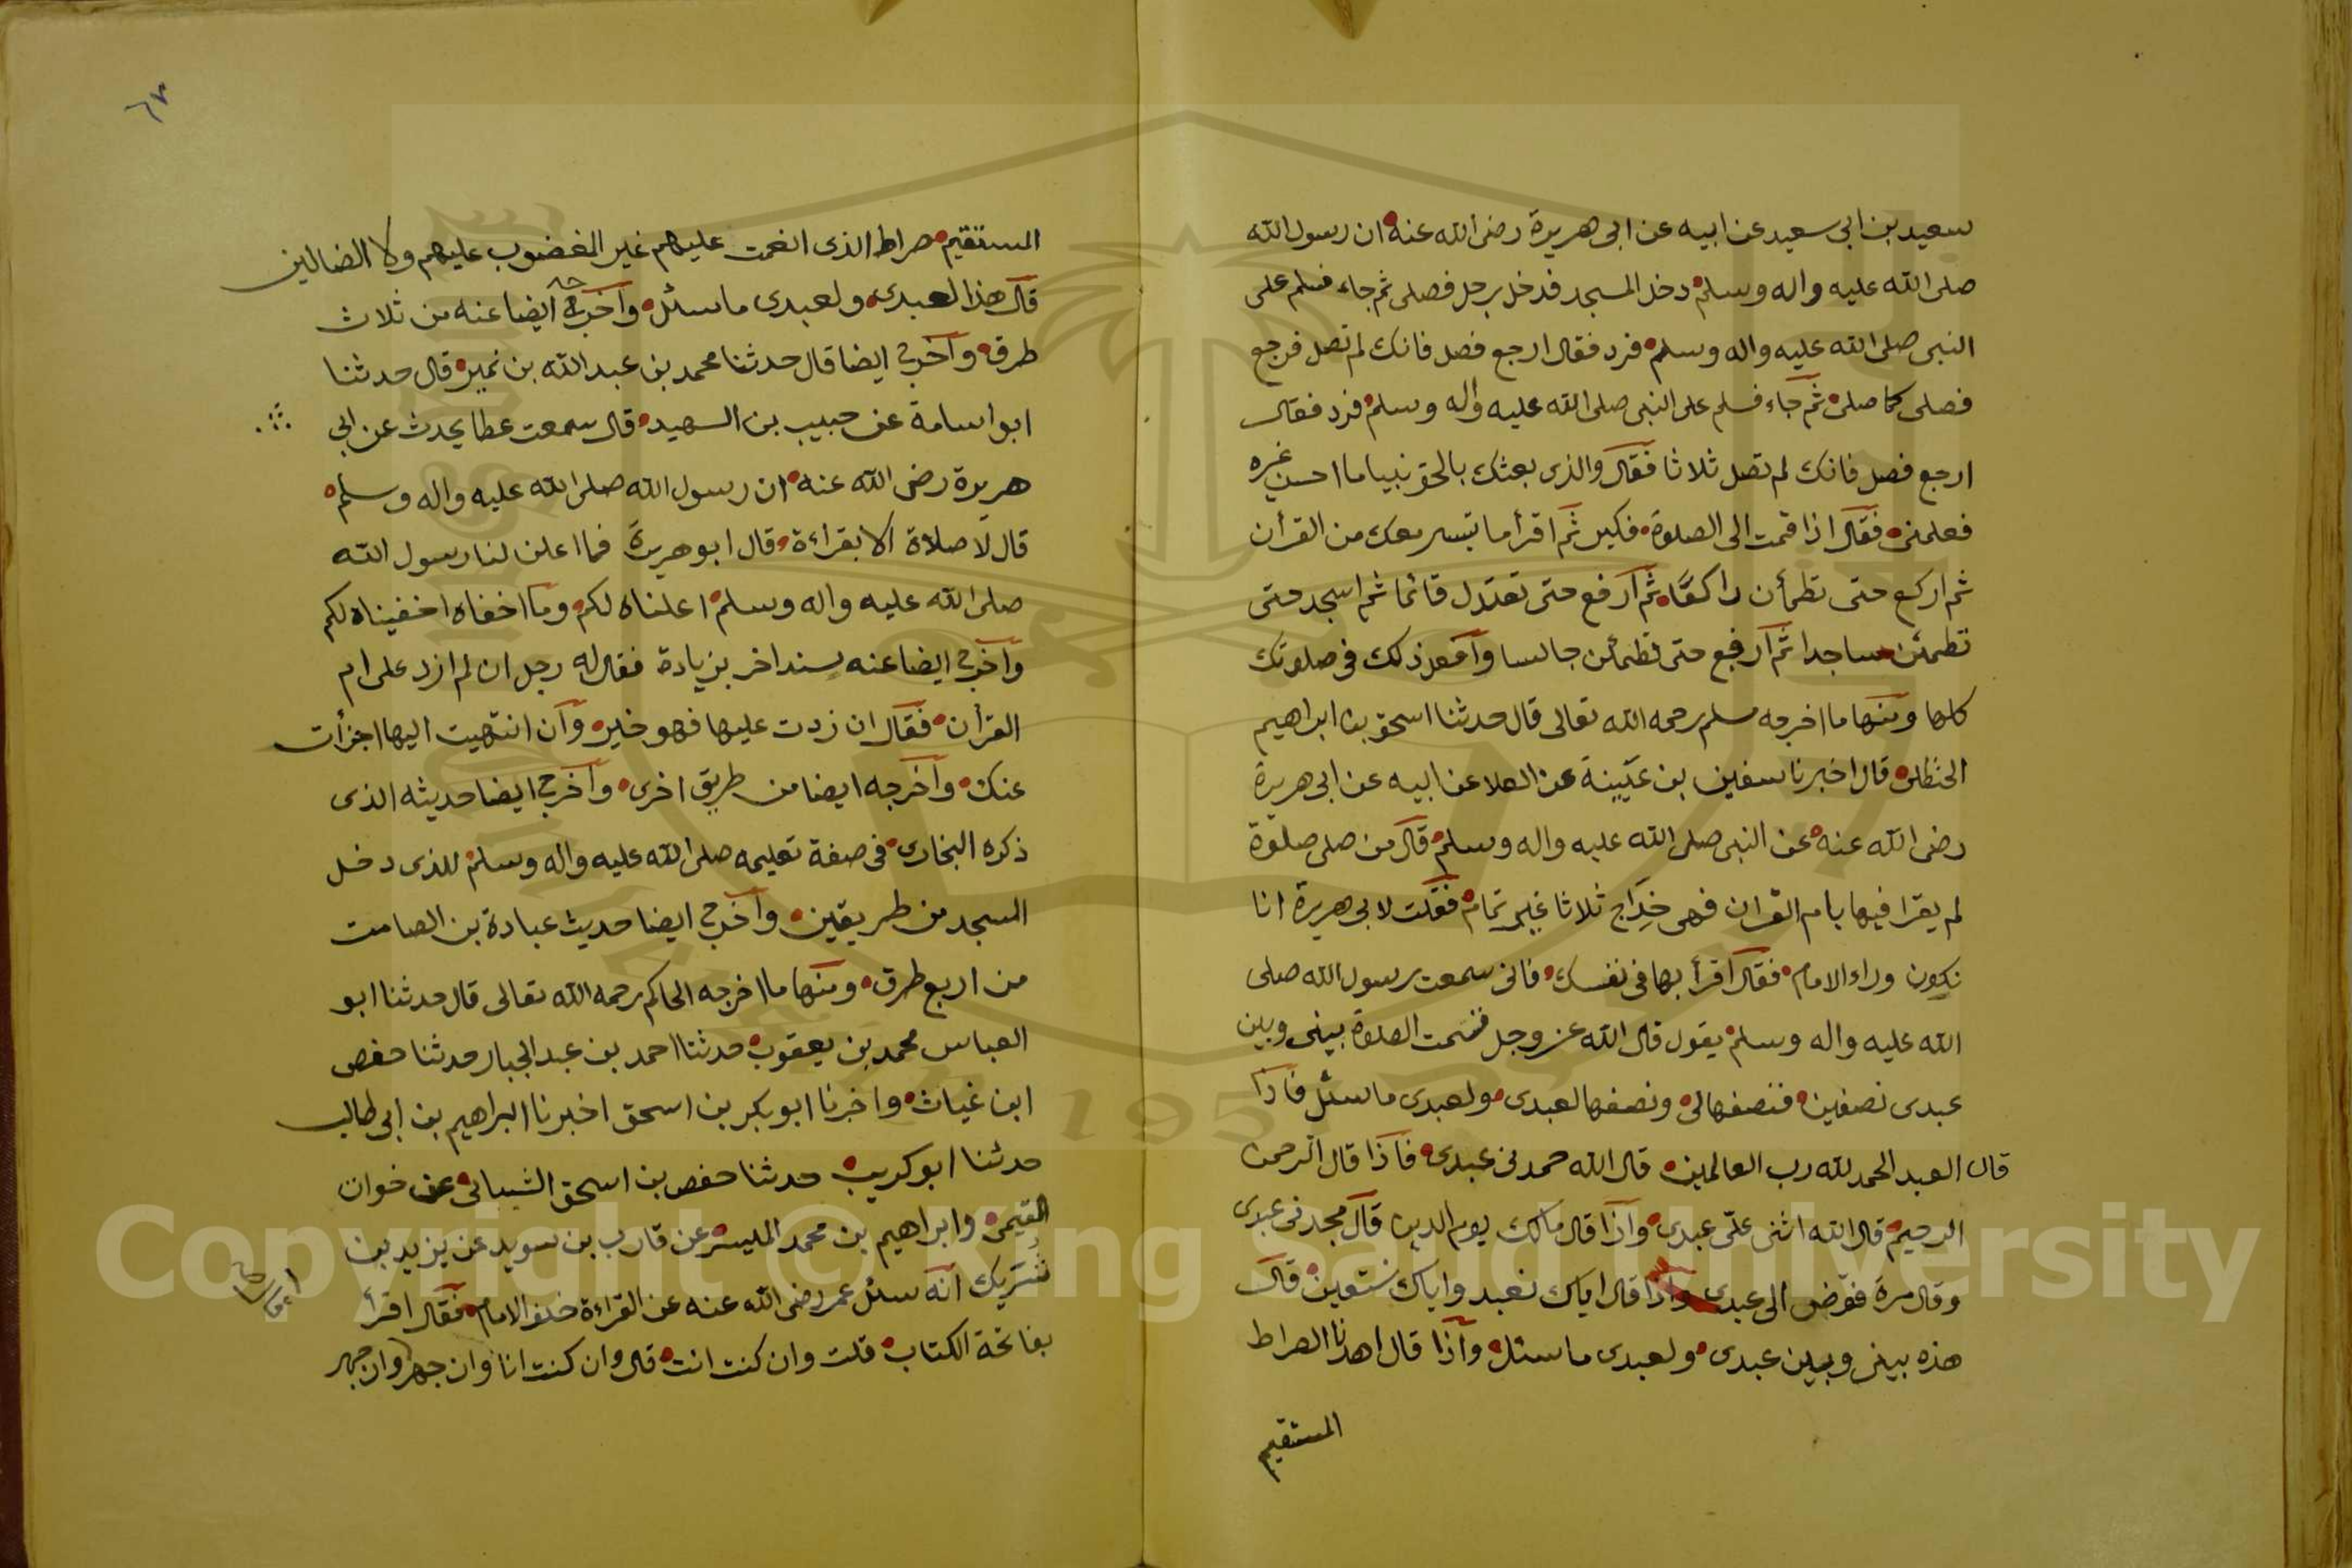 سعيد بن ابي سعيد عن ابيه عن ابي هريرة رضى الله عنه ان رسول الله
صلى الله عليه واله وسلم دخل المسجد فدخل رجل فصلى ثم جاء فسلم على
النبى صلى الله عليه واله وسلم فرد فقال ارجع فصل فانك لم تصل فرجع
فصلى كما صلى ثم جاء فسلم على النبى صلى الله عليه واله وسلم فرد فقال
ارجع فصل فانك لم تصل ثلاثا فقال والذى بعثك بالحق نبيا ما احسن غيره
فعلمنى فقال اذا قمت الى الصلوة فكبر ثم اقرأ ما تيسر معك من القرأن
ثم اركع حتى تطمأن راكعًا ثم ارفع حتى تعتدل قائما ثم اسجد حتى
تطمئن ساجدا ثم ارفع حتى تطمأن جالسا وافعل ذلك في صلوتك
كلها ومنها ما اخرجه مسلم رحمه الله تعالى قال حدثنا اسحق بن ابراهيم
الحنظلى قال اخبرنا سفين بن عيينة عن العلا عن ابيه عن ابي هريرة
رضى الله عنه عن النبى صلى الله عليه واله وسلم قال من صلى صلوة
لم يقرا فيها بام القران فهى خداج ثلاثا غير تمام فقلت لابي هريرة انا
نكون وراء الامام فقال اقرأ بها في نفسك فانى سمعت رسول الله صلى
الله عليه واله وسلم يقول قال الله عز وجل قسمت الصلوة بينى وبين
عبدى نصفين فنصفها لى ونصفها لعبدى ولعبدى ما سئل فاذا
قال العبد الحمد لله رب العالمين قال الله حمدنى عبدى فاذا قال الرحمن
الرحيم قال الله اثنى علىّ عبدى واذا قال مالك يوم الدين قال مجدنى عبدى
وقال مرة فوّض الى عبدى واذا قال اياك نعبد واياك نستعين قال
هذه بينى وبين عبدى ولعبدى ما سئل واذا قال اهدنا الصراط
المستقيم
٦٣
المستقيم صراط الذى انعمت عليهم غير المغضوب عليهم ولا الضالين
قال هذا لعبدى ولعبدى ما سئل واخرج ايضا عنه من ثلاث
طرق واخرج ايضا قال حدثنا محمد بن عبد الله بن نمير قال حدثنا
ابو اسامة عن حبيب بن الشهيد قال سمعت عطا يحدث عن ابي
هريرة رضى الله عنه ان رسول الله صلى الله عليه واله وسلم
قال لا صلاة الا بقراءة قال ابو هريرة فما اعلن لنا رسول الله
صلى الله عليه واله وسلم اعلناه لكم وما اخفاه اخفيناه لكم
واخرج ايضا عنه بسند اخر بزيادة فقال له رجل ان لم ازد على ام
القرأن فقال ان زدت عليها فهو خير وان انتهيت اليها اجزأت
عنك واخرجه ايضا من طريق اخرى واخرج ايضا حديثه الذى
ذكره البخارى في صفة تعليمه صلى الله عليه واله وسلم للذى دخل
المسجد من طريقين واخرج ايضا حديث عبادة بن الصامت
من اربع طرق ومنها ما اخرجه الحاكم رحمه الله تعالى قال حدثنا ابو
العباس محمد بن يعقوب حدثنا احمد بن عبد الجبار حدثنا حفص
ابن غياث واخبرنا ابو بكر بن اسحق اخبرنا ابراهيم بن ابي طالب
حدثنا ابو كريب حدثنا حفص بن اسحق الشيبانى عن خوان
التيمى وابراهيم بن محمد المليسر عن قارب بن سويد عن يزيد بن
شريك انه سئل عمر رضى الله عنه عن القراءة خلف الامام فقال اقرأ
بفاتحة الكتاب قلت وان كنت انت قال وان كنت انا وان جهر وان جهر
Copyright © King Saud University
1957